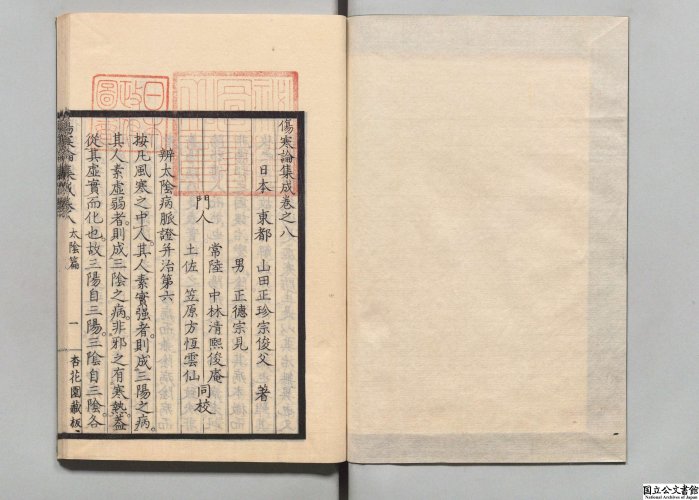 傷寒論集成卷之八
日本 東都 山田正珍宗俊父 著
男 正德宗見
門人
常陸 中林清熙俊庵
土佐 笠原方恆雲仙
同校
辨太陰病脈證并治第六
按凡風寒之中人。其人素實强者。則成三陽之病。
其人素虛弱者。則成三陰之病。非邪之有寒熱。蓋
從其虛實而化也。故三陽自三陽。三陰自三陰。各
傷寒論集成卷八 太陰篇 一 杏花園藏板
国立公文書館
National Archives of Japan